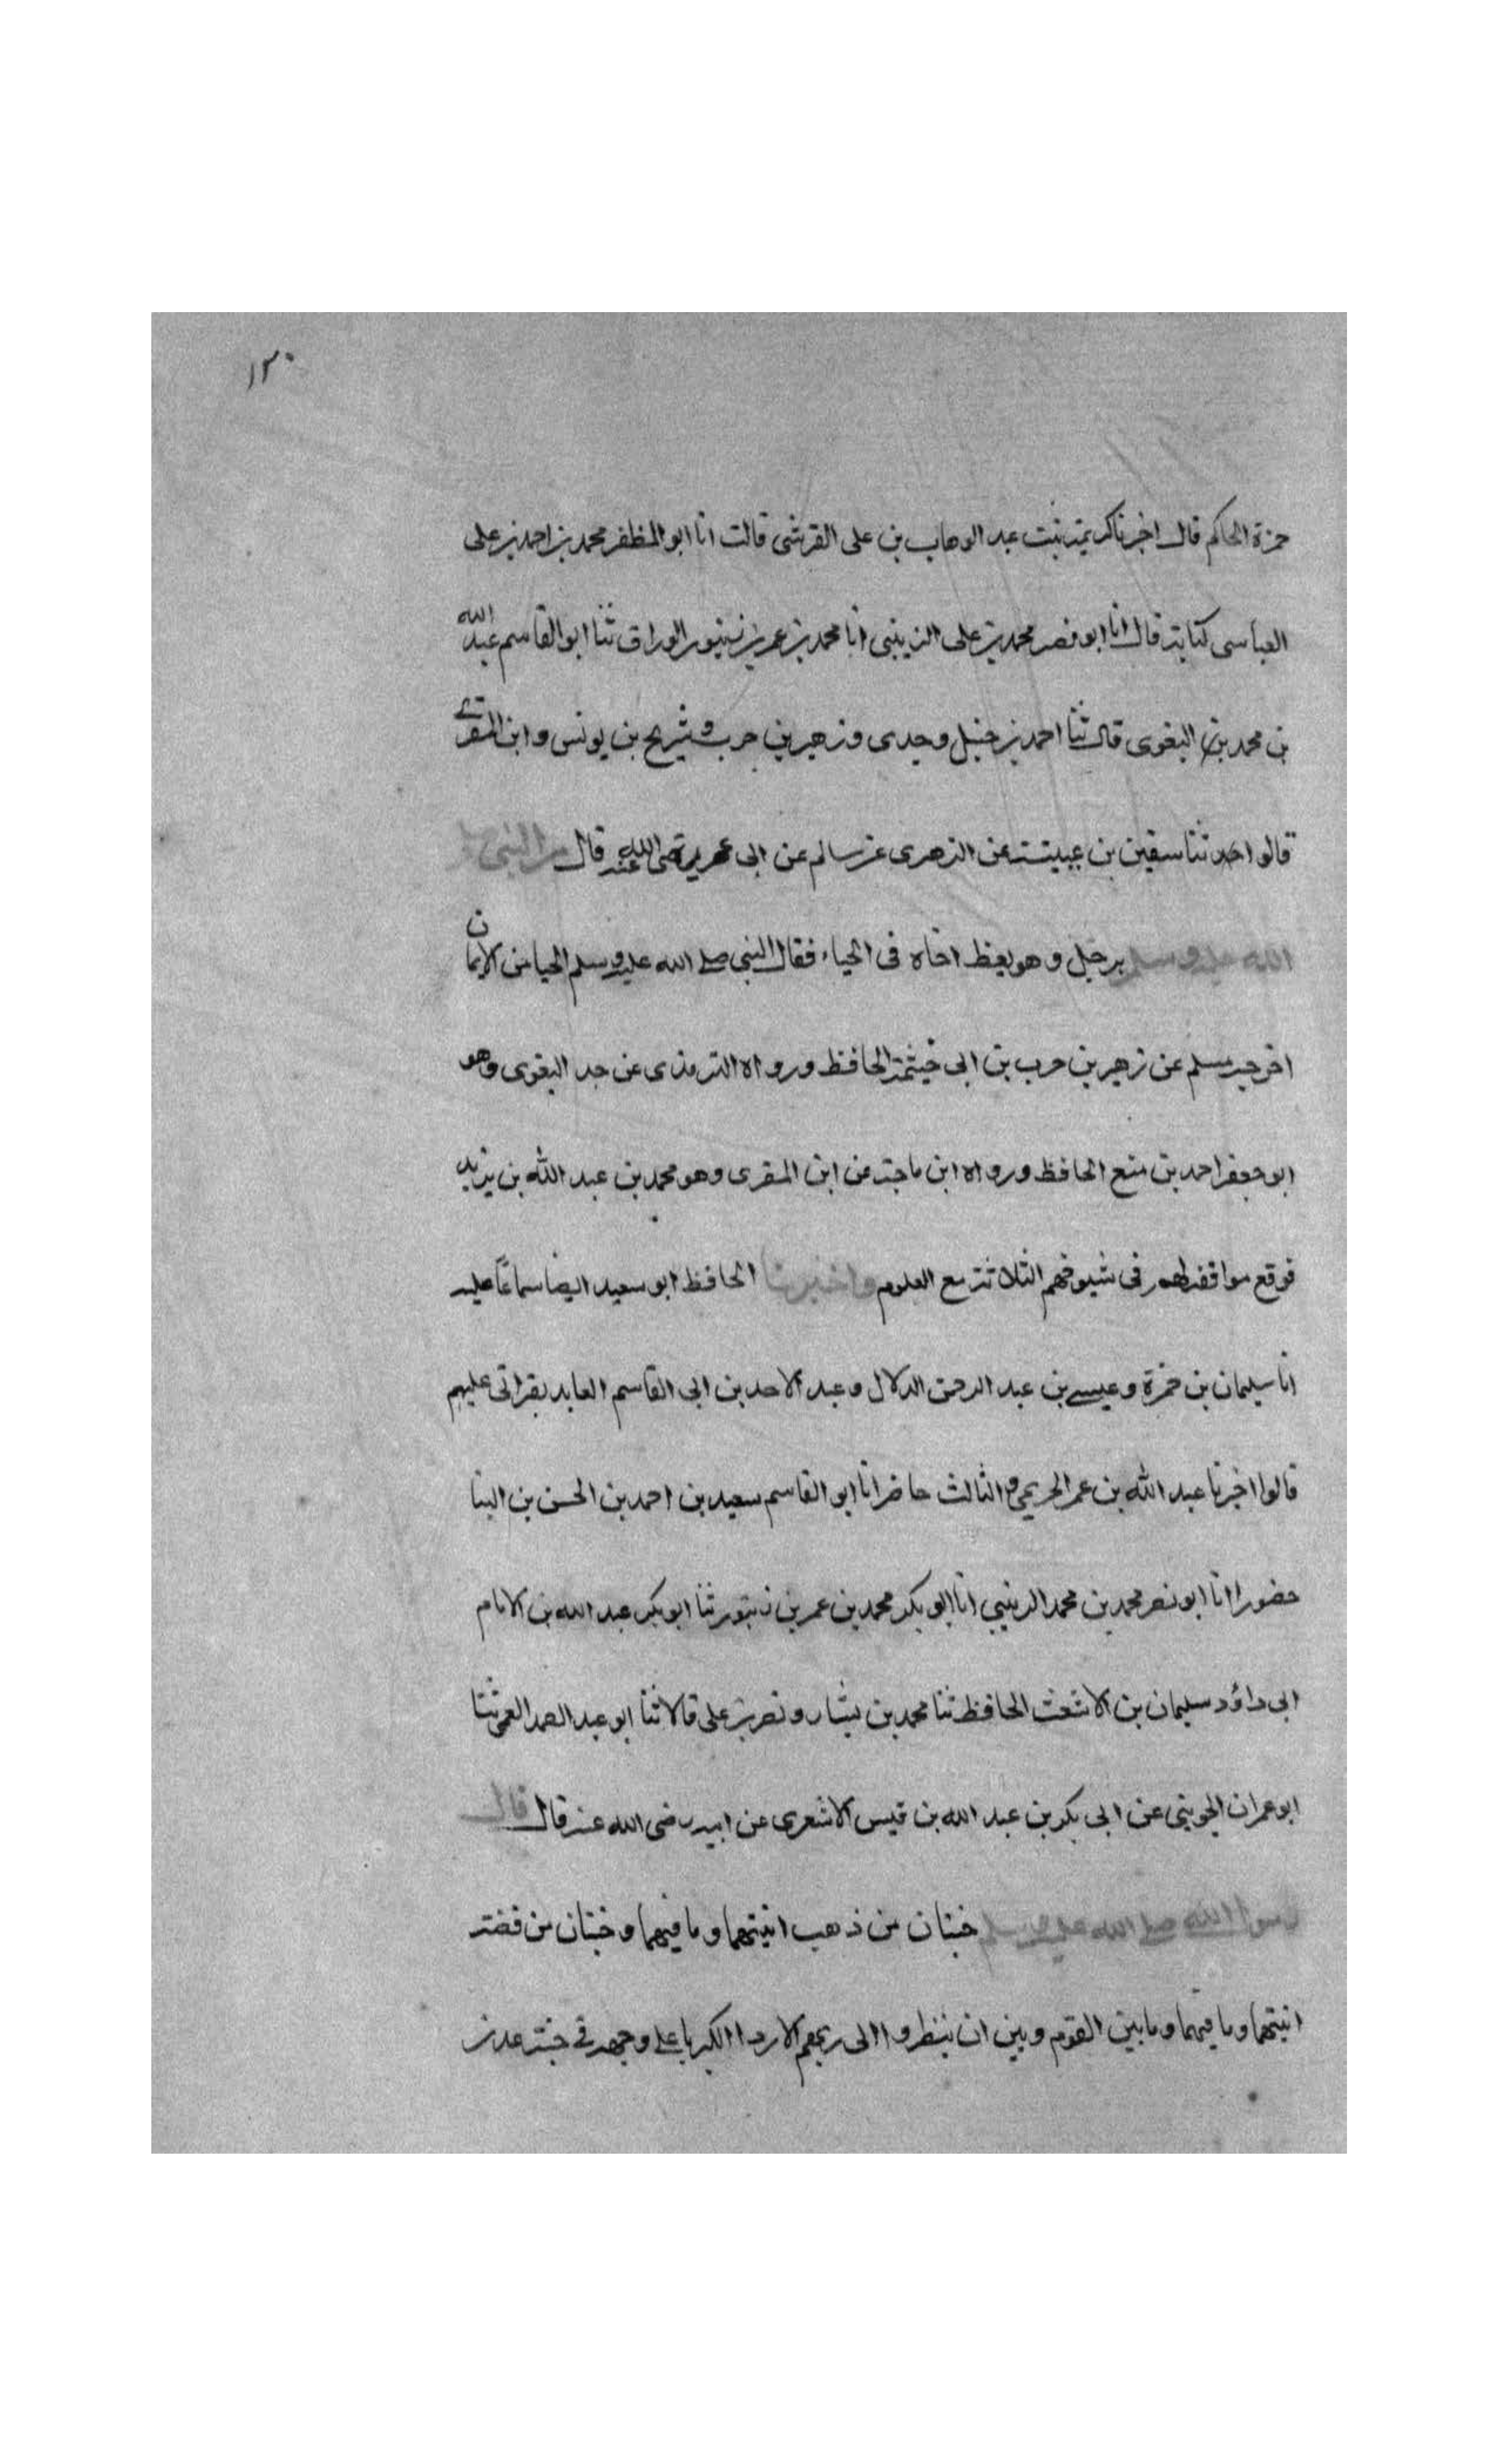 ١٣٠
حمزة الحاكم قال اخبرناكريمة بنت عبد الوهاب بن على القرشى قالت انا ابو المظفر محمد بن احمد بن على
العباسى كتابة قال انا ابو نصر محمد بن على الزينبى انا محمد بن عمر بن زنبور الوراق ثنا ابو القاسم عبد الله
بن محمد بن البغوى قال ثنا احمد بن حنبل وجدى وزهير بن حرب وشريح بن يونس وابن المقرے
قالوا حدثنا سفين بن عيينة عن الزهرى عن سالم عن ابى هريرة رضى الله عنه قال مر النبى صلى
الله عليه وسلم برجل وهو يعظ اخاه فى الحياء فقال النبى صلے الله عليه وسلم الحيا من الايمان
اخرجه مسلم عن زهير بن حرب بن ابى خيثمة الحافظ ورواه الترمذى عن جد البغوى وهو
ابو جعفر احمد بن منع الحافظ ورواه ابن ماجة عن ابن المقرى وهو محمد بن عبد الله بن يزيد
فوقع موافقة لهم فى شيوخهم الثلاثة مع العلوم واخبرنا الحافظ ابو سعيد ايضا سماعًا عليه
انا سليمان بن حمزة وعيسے بن عبد الرحمن الدلال وعبد الاحد بن ابى القاسم العابد بقراتى عليهم
قالوا اخبرنا عبد الله بن عمر الحريمى و الثالث حاضر انا ابو القاسم سعيد بن احمد بن الحسن بن البنا
حضورا انا ابو نصر محمد بن محمد الزينبي انا ابو بكر محمد بن عمر بن زنبور ثنا ابو بكر عبد الله بن الامام
ابى داؤد سليمان بن الاشعث الحافظ ثنا محمد بن بشار ونصر بن على قالا ثنا ابو عبد الصمد العمى ثنا
ابو عمران الجوينى عن ابى بكر بن عبد الله بن قيس الاشعرى عن ابيه رضى الله عنه قال قال
رسول الله صلے الله عليه وسلم جنتان من ذهب انيتهما وما فيهما وجنتان من فضة
انيتهما وما فيهما وما بين القوم وبين ان ينظروا الى ربهم الا ردا الكبريا على وجهه فے جنة عدن